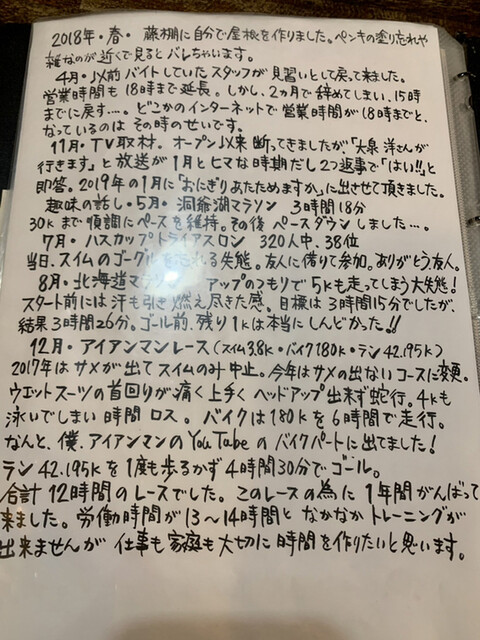 2018年・春・ 藤棚に自分で屋根を作りました。ペンキの塗り忘れや
雑なのが近くで見るとバレちゃいます。
4月・以前バイトしていたスタッフが見習いとして戻って来ました。
営業時間も18時まで延長。しかし、2カ月で辞めてしまい、15時
までに戻す…。どこかのインターネットで営業時間が18時までと、
なっているのはその時のせいです。
11月・TV取材。オープン以来断ってきましたが「大泉洋さんが
行きます」と放送が1月とヒマな時期だし2つ返事で「はい!!」と
即答。2019年の1月に「おにぎりあたためますか」に出させて頂きました。
趣味の話し・5月・洞爺湖マラソン 3時間18分
30kまで順調にペースを維持。その後ペースダウンしました…。
7月・ハスカップトライアスロン 320人中、38位
当日、スイムのゴーグルを忘れる失態。友人に借りて参加。ありがとう友人。
8月・北海道マラソン アップのつもりで5kも走ってしまう大失態!
スタート前には汗も引き燃え尽きた感。目標は3時間15分でしたが、
結果3時間26分。ゴール前、残り1kは本当にしんどかった!!
12月・アイアンマンレース(スイム3.8k・バイク180k・ラン42.195k)
2017年はサメが出てスイムのみ中止。今年はサメの出ないコースに変更。
ウエットスーツの首回りが痛く上手くヘッドアップ出来ず蛇行。4kも
泳いでしまい時間ロス。バイクは180kを6時間で走行。
なんと、僕、アイアンマンのYouTabeのバイクパートに出てました!
ラン42.195kを1度も歩るかず4時間30分でゴール。
合計12時間のレースでした。このレースの為に1年間がんばって
来ました。労働時間が13〜14時間となかなかトレーニングが
出来ませんが仕事も家庭も大切に時間を作りたいと思います。